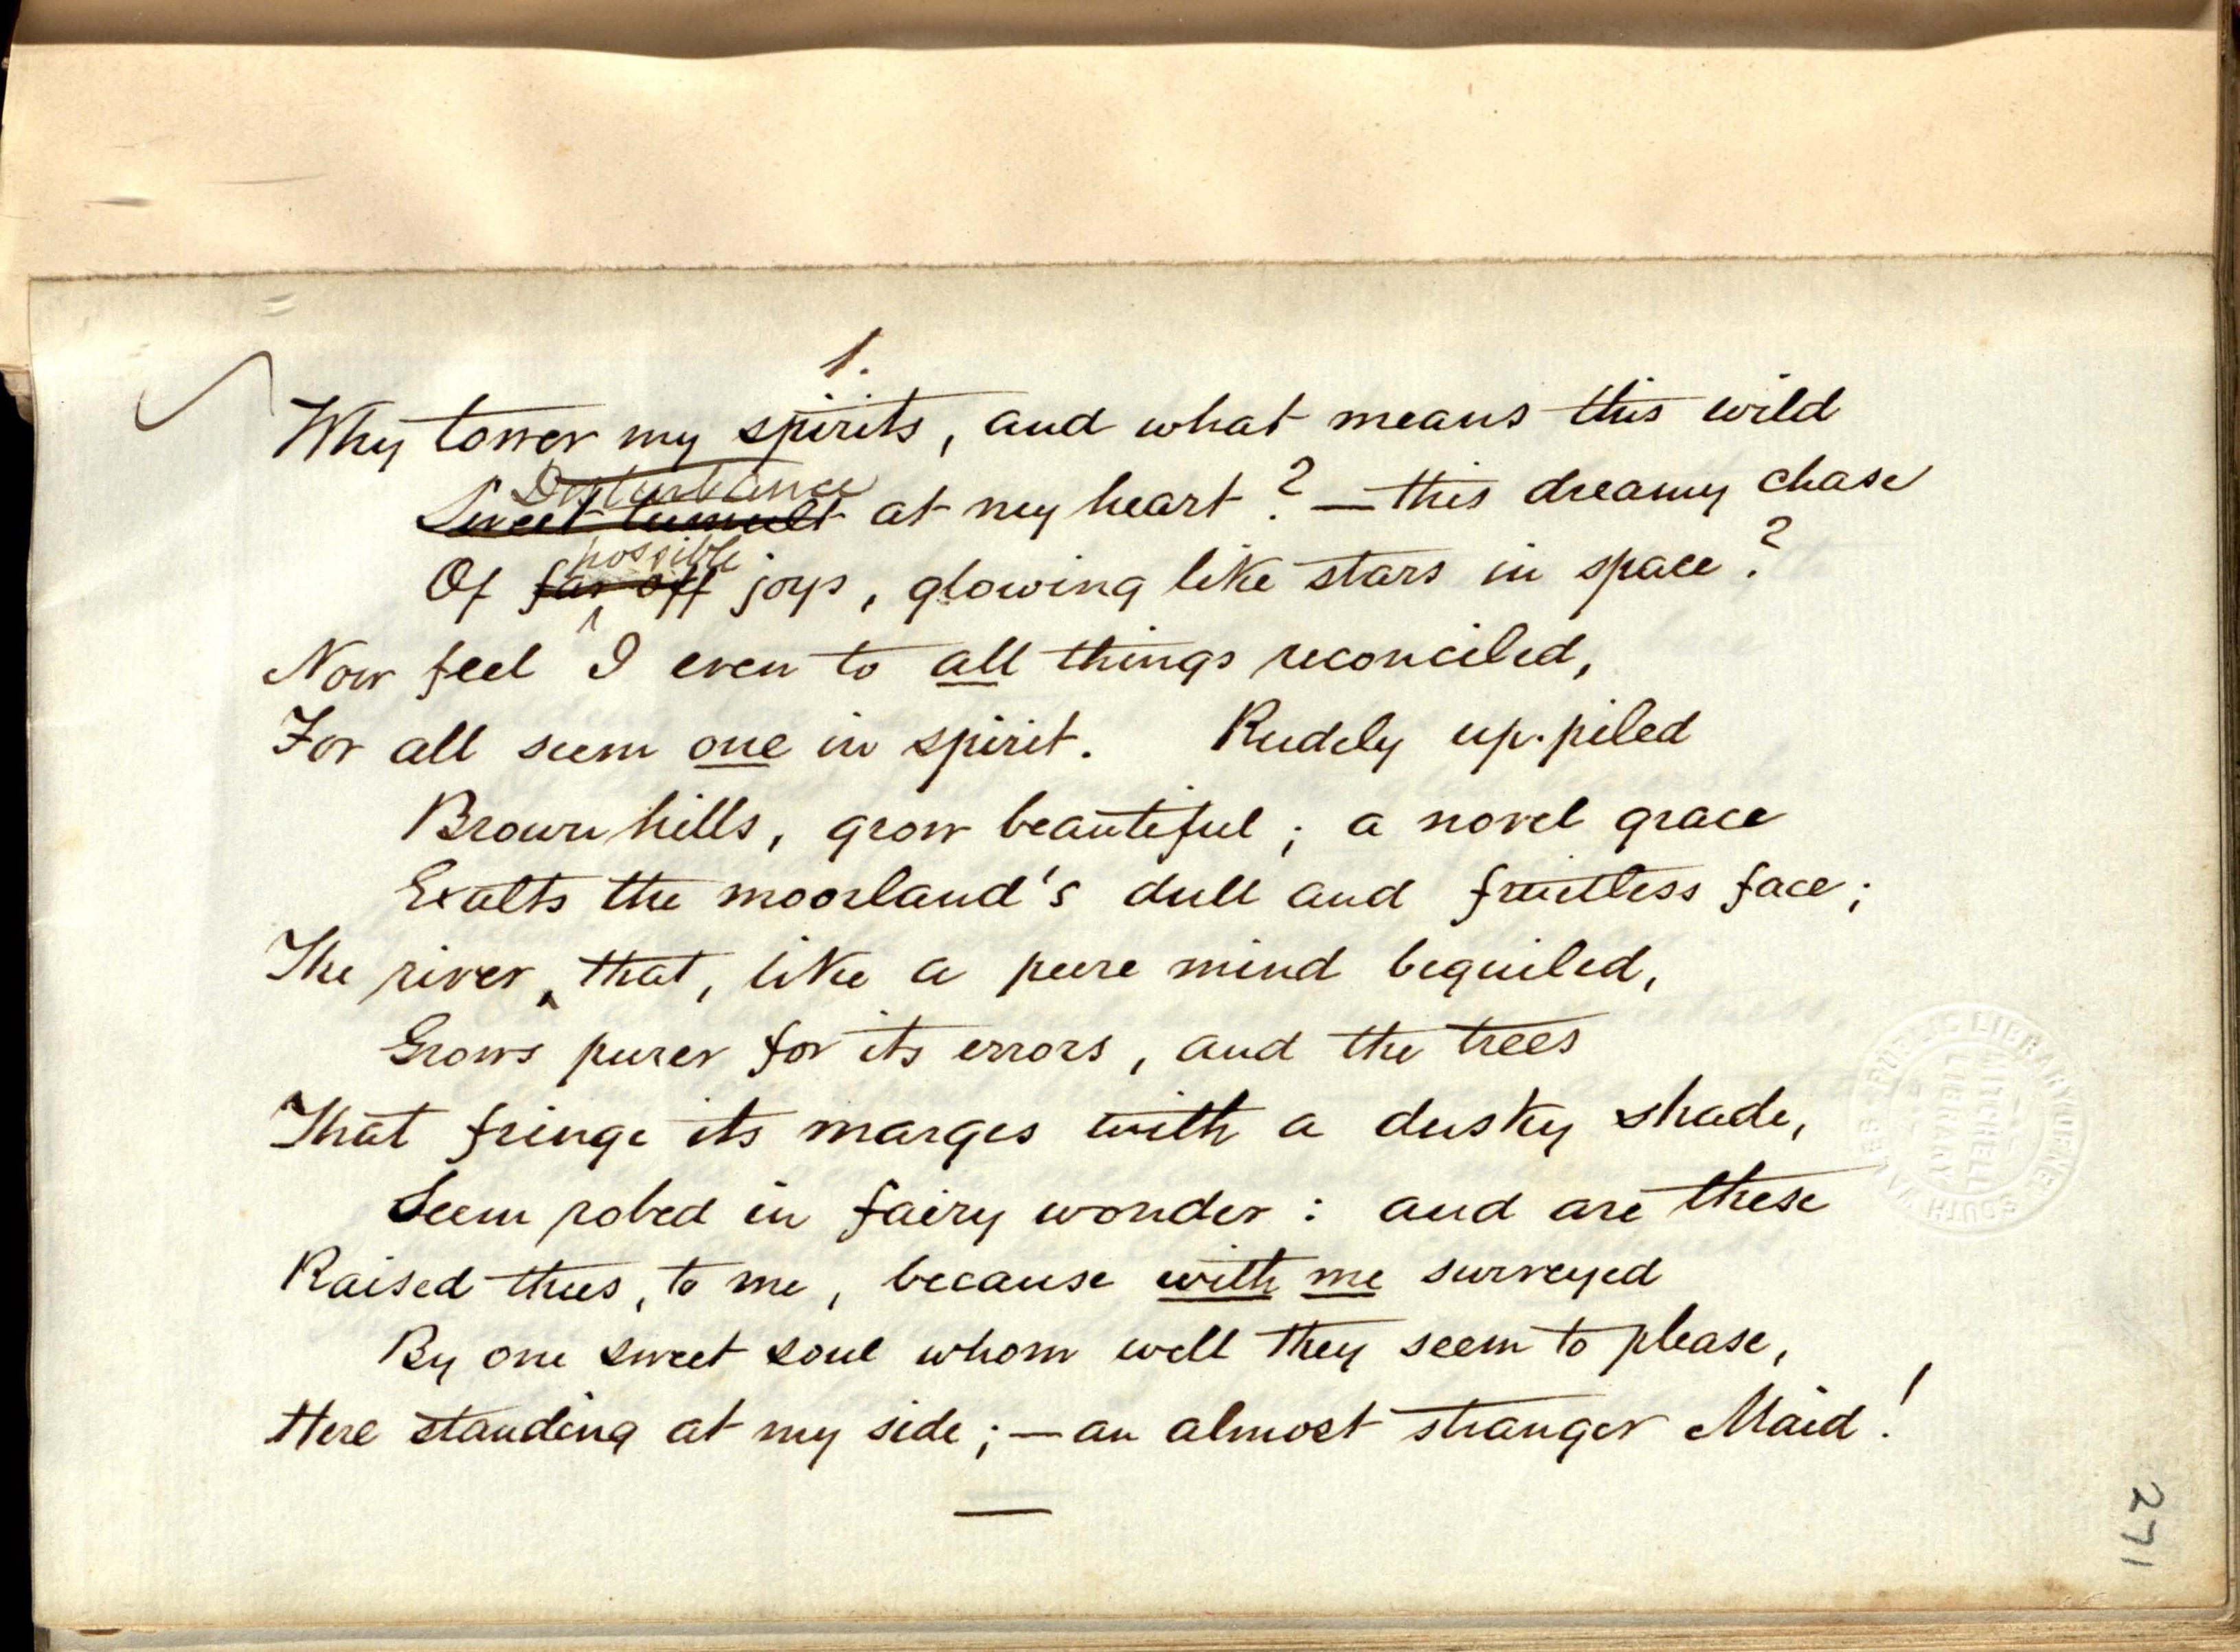 1.
Why tower my spirits, and what means this wild
Disturbance
Sweet tumult at my heart?—this dreamy chase
possible
Of far off joys, glowing like stars in space?
Now feel I even to all things reconciled,
For all seem one in spirit. Rudely up-piled
Brown hills, grow beautiful; a novel grace
Exalts the moorland's dull and fruitless face;
The river, that, like a pure mind beguiled,
Grows purer for its errors, and the trees
That fringe its marges with a dusky shade,
Seem robed in fairy wonder: and are these
Raised thus, to me, because with me surveyed
By one sweet soul whom well they seem to please,
Here standing at my side;—an almost stranger Maid!
PUBLIC LIBRARY OF NEW SOUTH WALES
MITCHELL LIBRARY
271